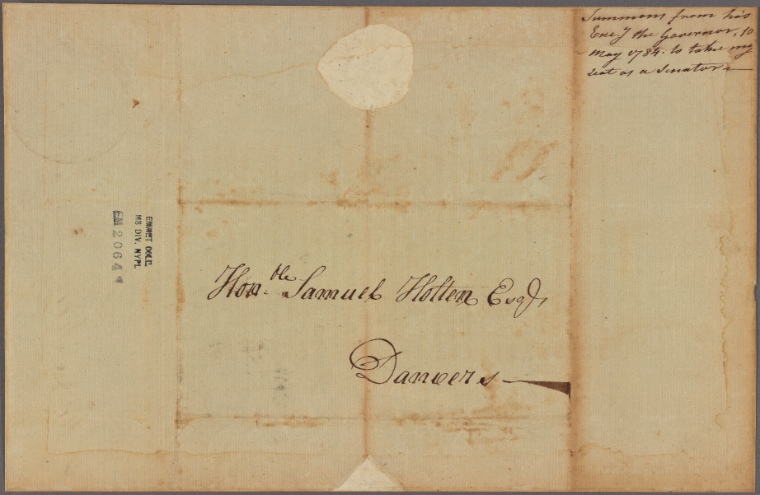 Summons from his
Exc'y the Governor, 10
May 1784. to take my
seat as a Senator
Hon.ble Samuel Holten Esqr,
Danvers
EMMET COLL.
MS DIV. NYPL
EM 2064